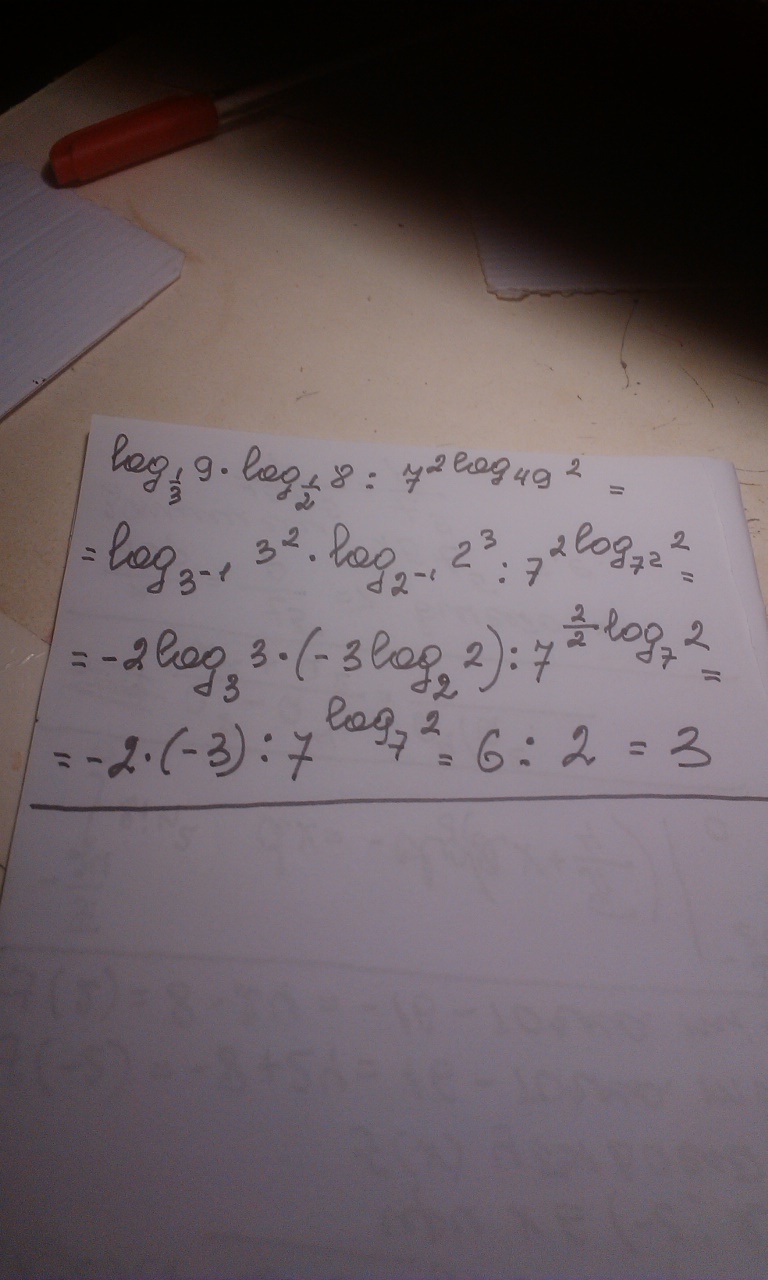 log_{1/3} 9 · log_{1/2} 8 : 7^{2 log_{49} 2} =
= log_{3^{-1}} 3^2 · log_{2^{-1}} 2^3 : 7^{2 log_{7^2} 2} =
= -2 log_3 3 · (-3 log_2 2) : 7^{2/2 log_7 2} =
= -2 · (-3) : 7^{log_7 2} = 6 : 2 = 3